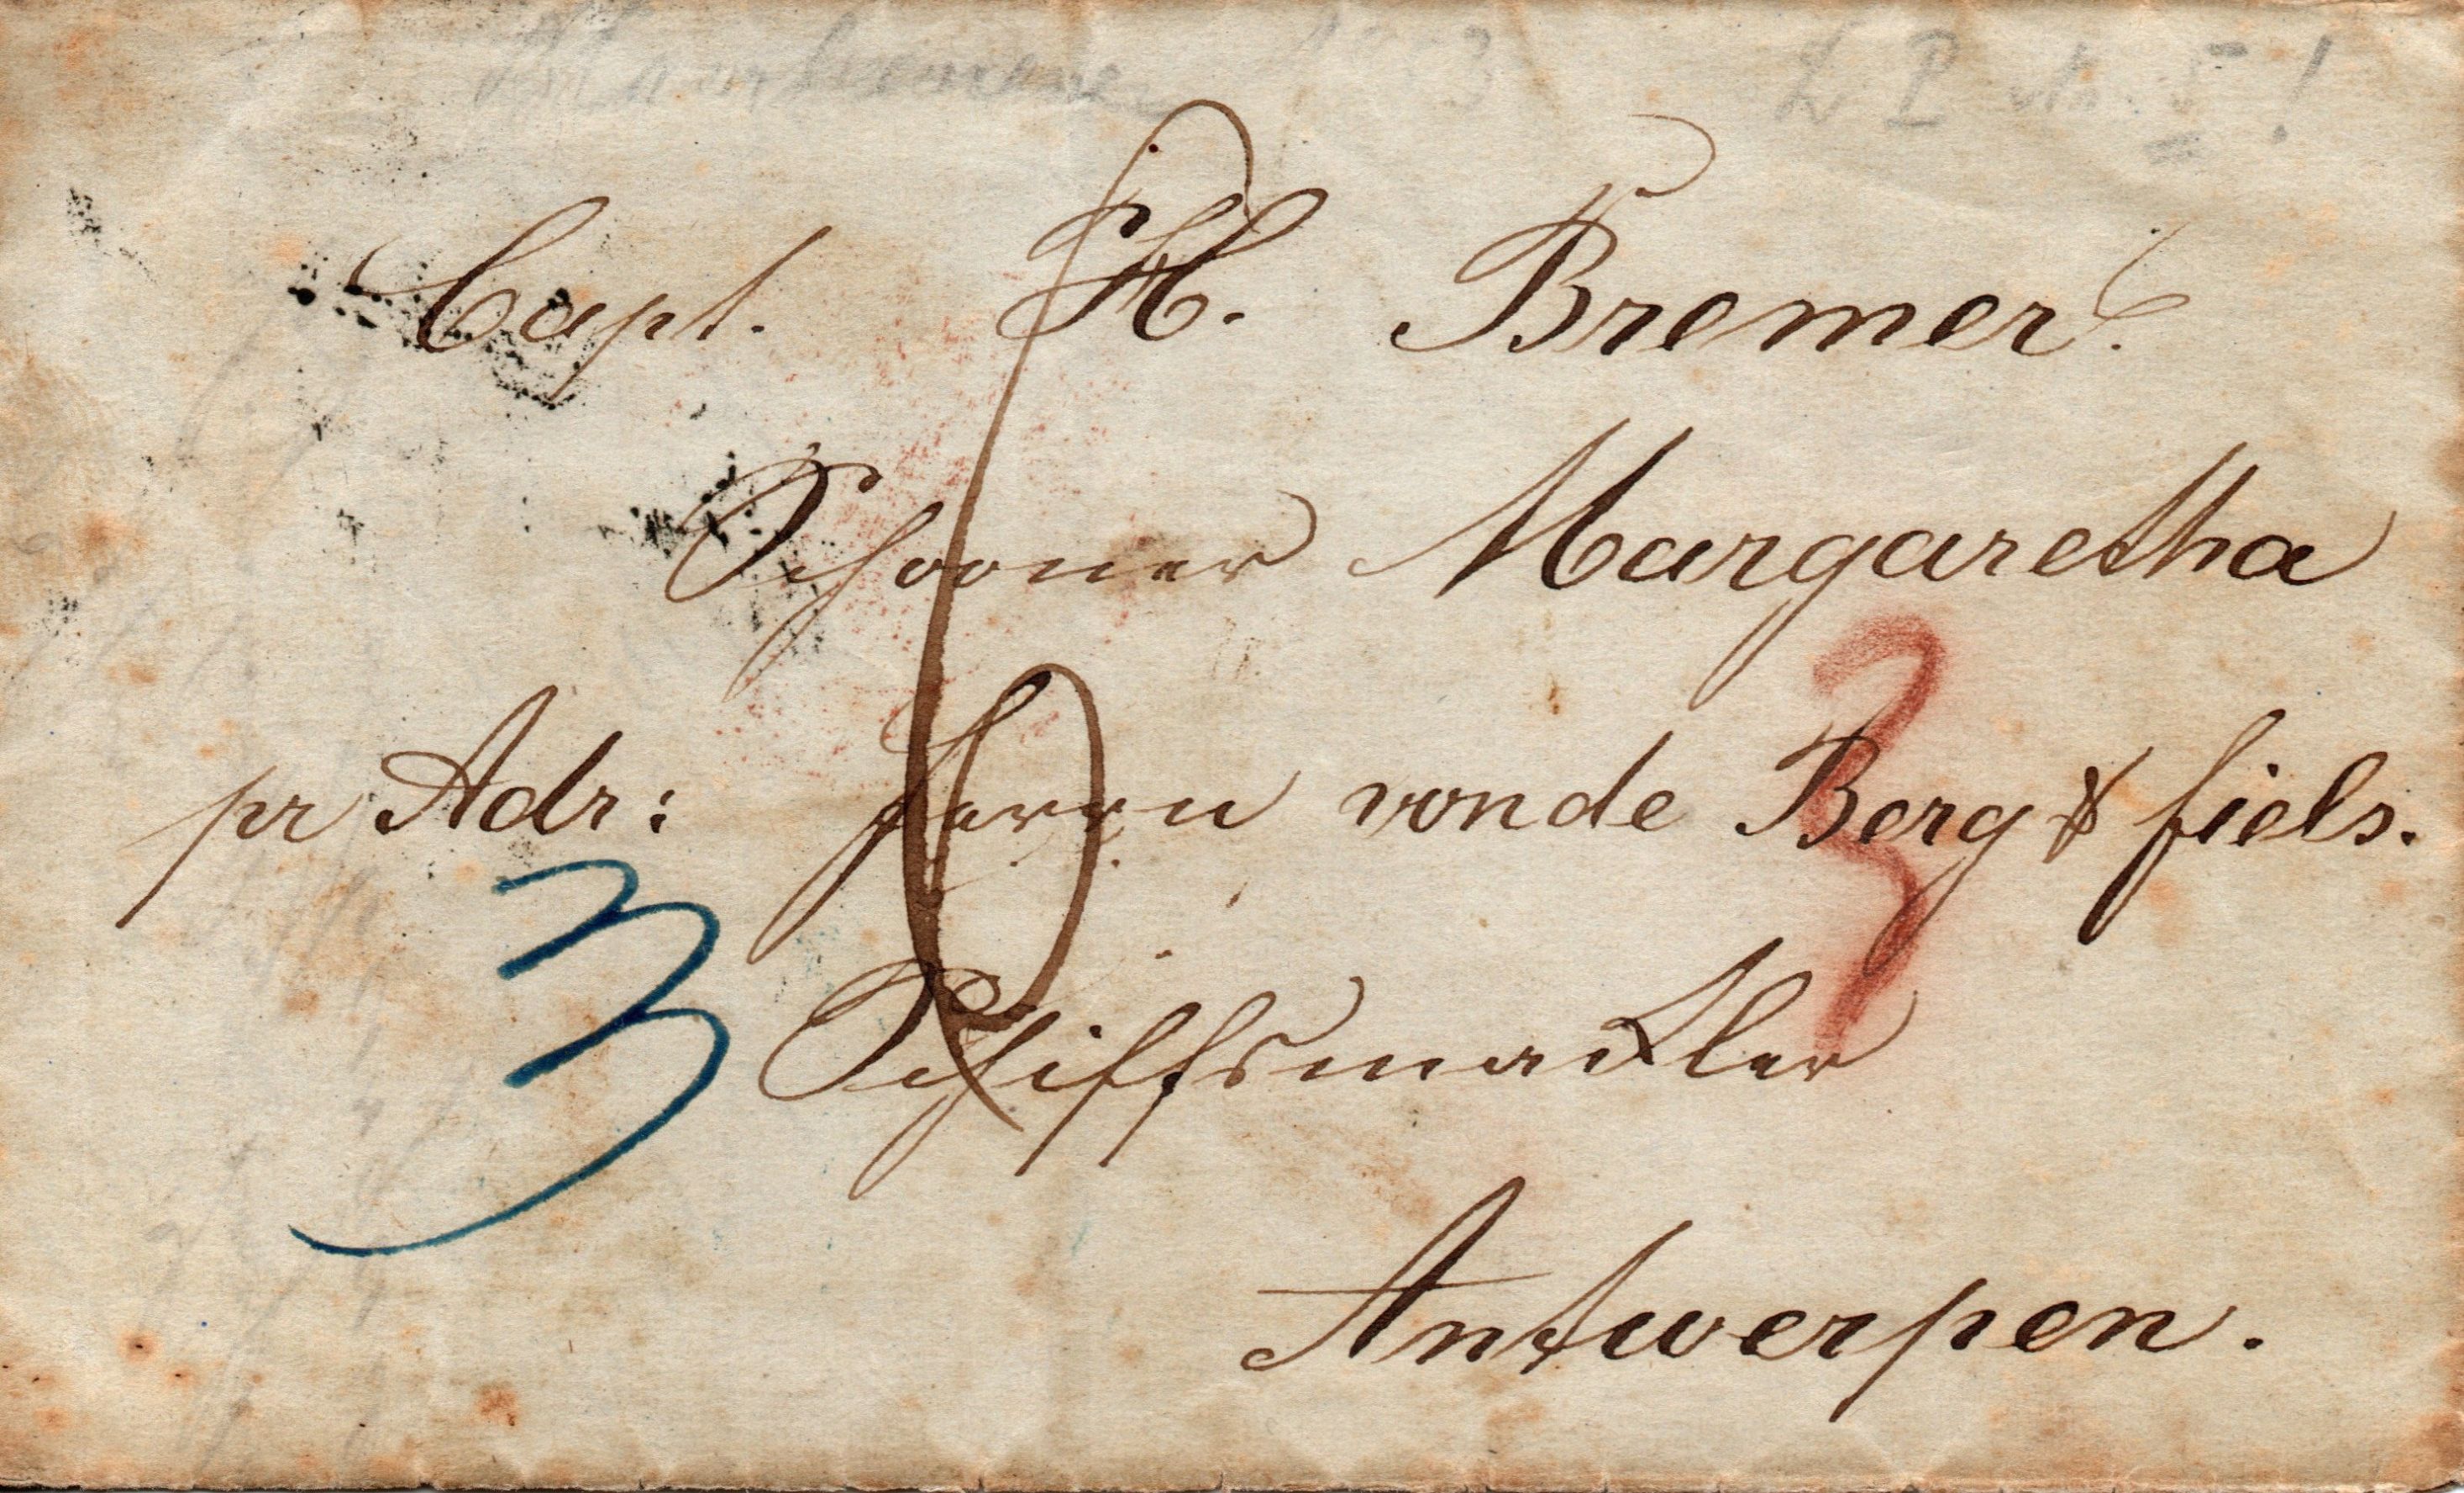 Capt. H. Bremer.
Schooner Margaretha
pr Adr: Herrn vonde Berg & fiels.
Schiffsmackler
Antwerpen.
6
3
3